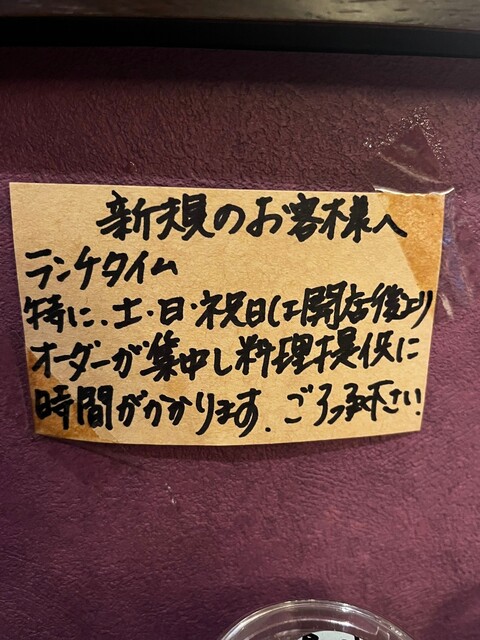 新規のお客様へ
ランチタイム
特に、土・日・祝日は開店後より
オーダーが集中し料理提供に
時間がかかります。ご了承下さい!